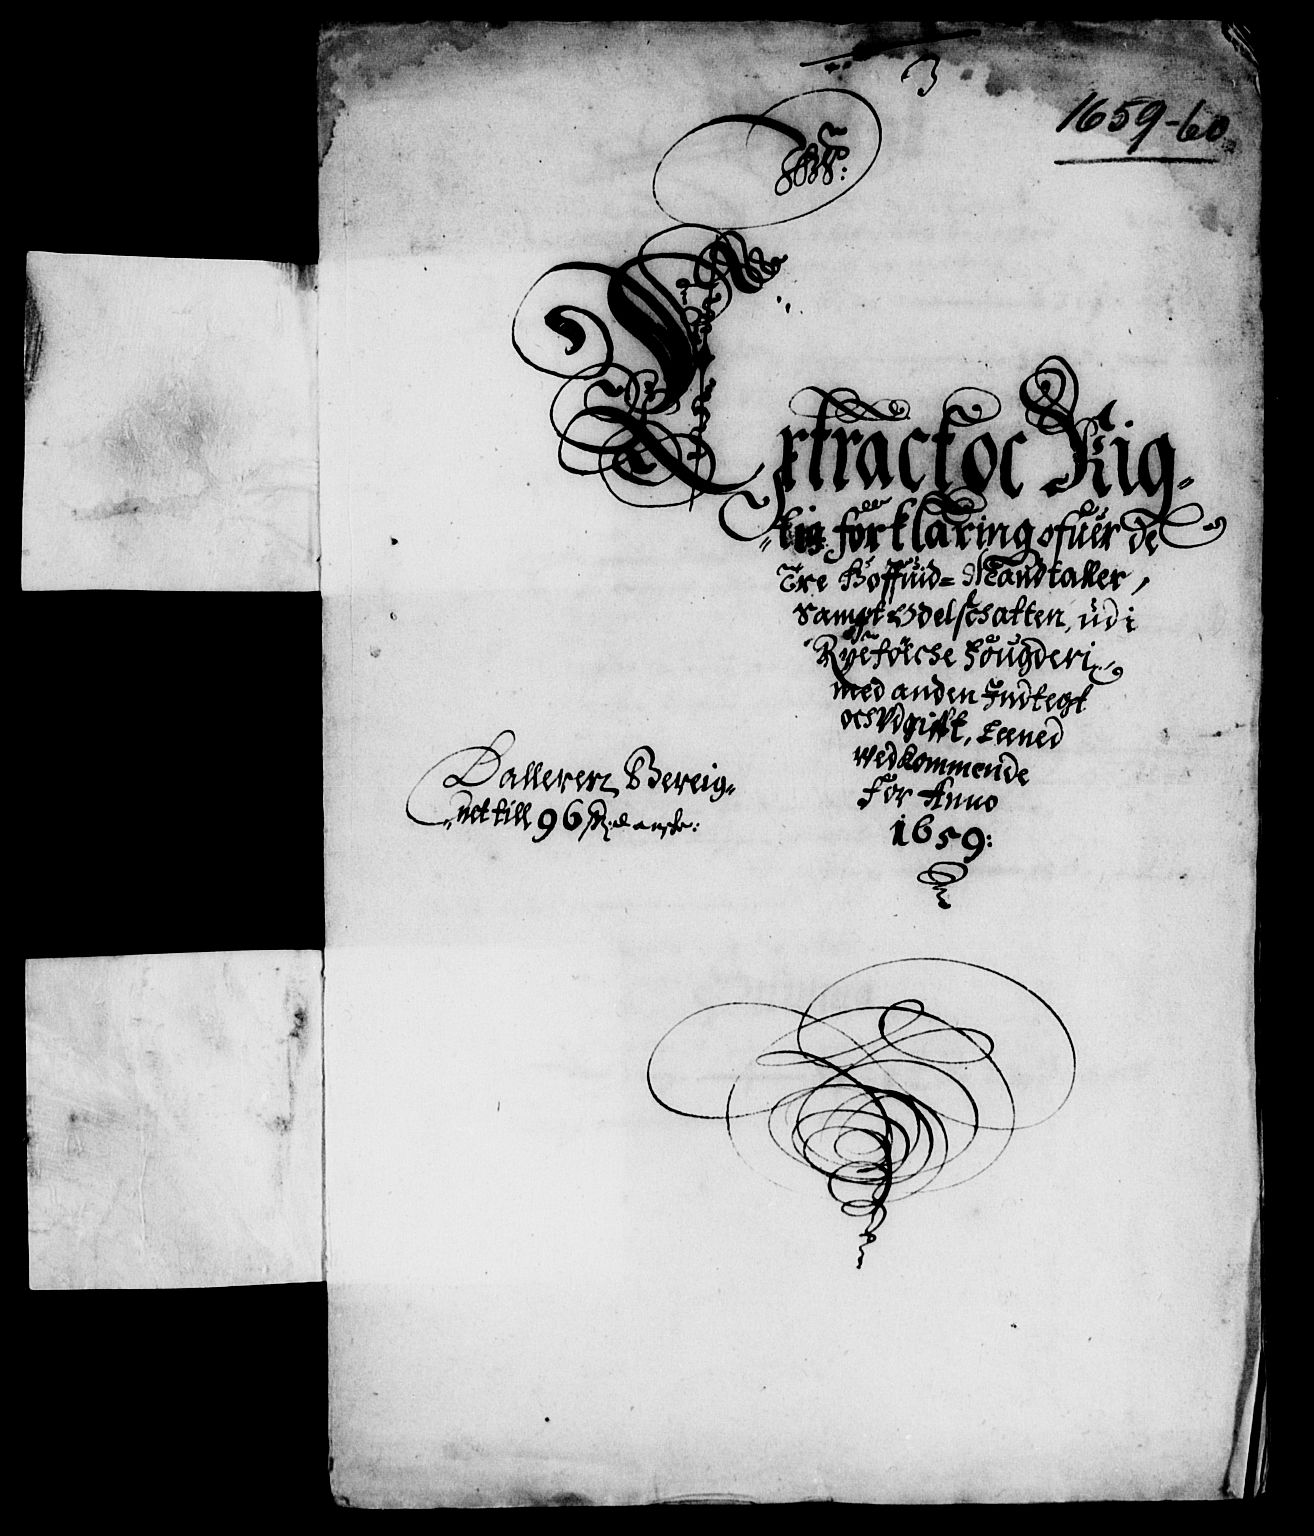 3
1659-60
Extract oc Rig-
"tig forklaring ofuer de
Tre Hoffuid= Mandtaller,
sampt Odelschatten, udi
Ryefölche fougderi
med anden Indtegt
och Vdgifft, Leened
wedkommende
For Anno
1659:
Dalleren Bereig-
"net till 96 ß: danske: